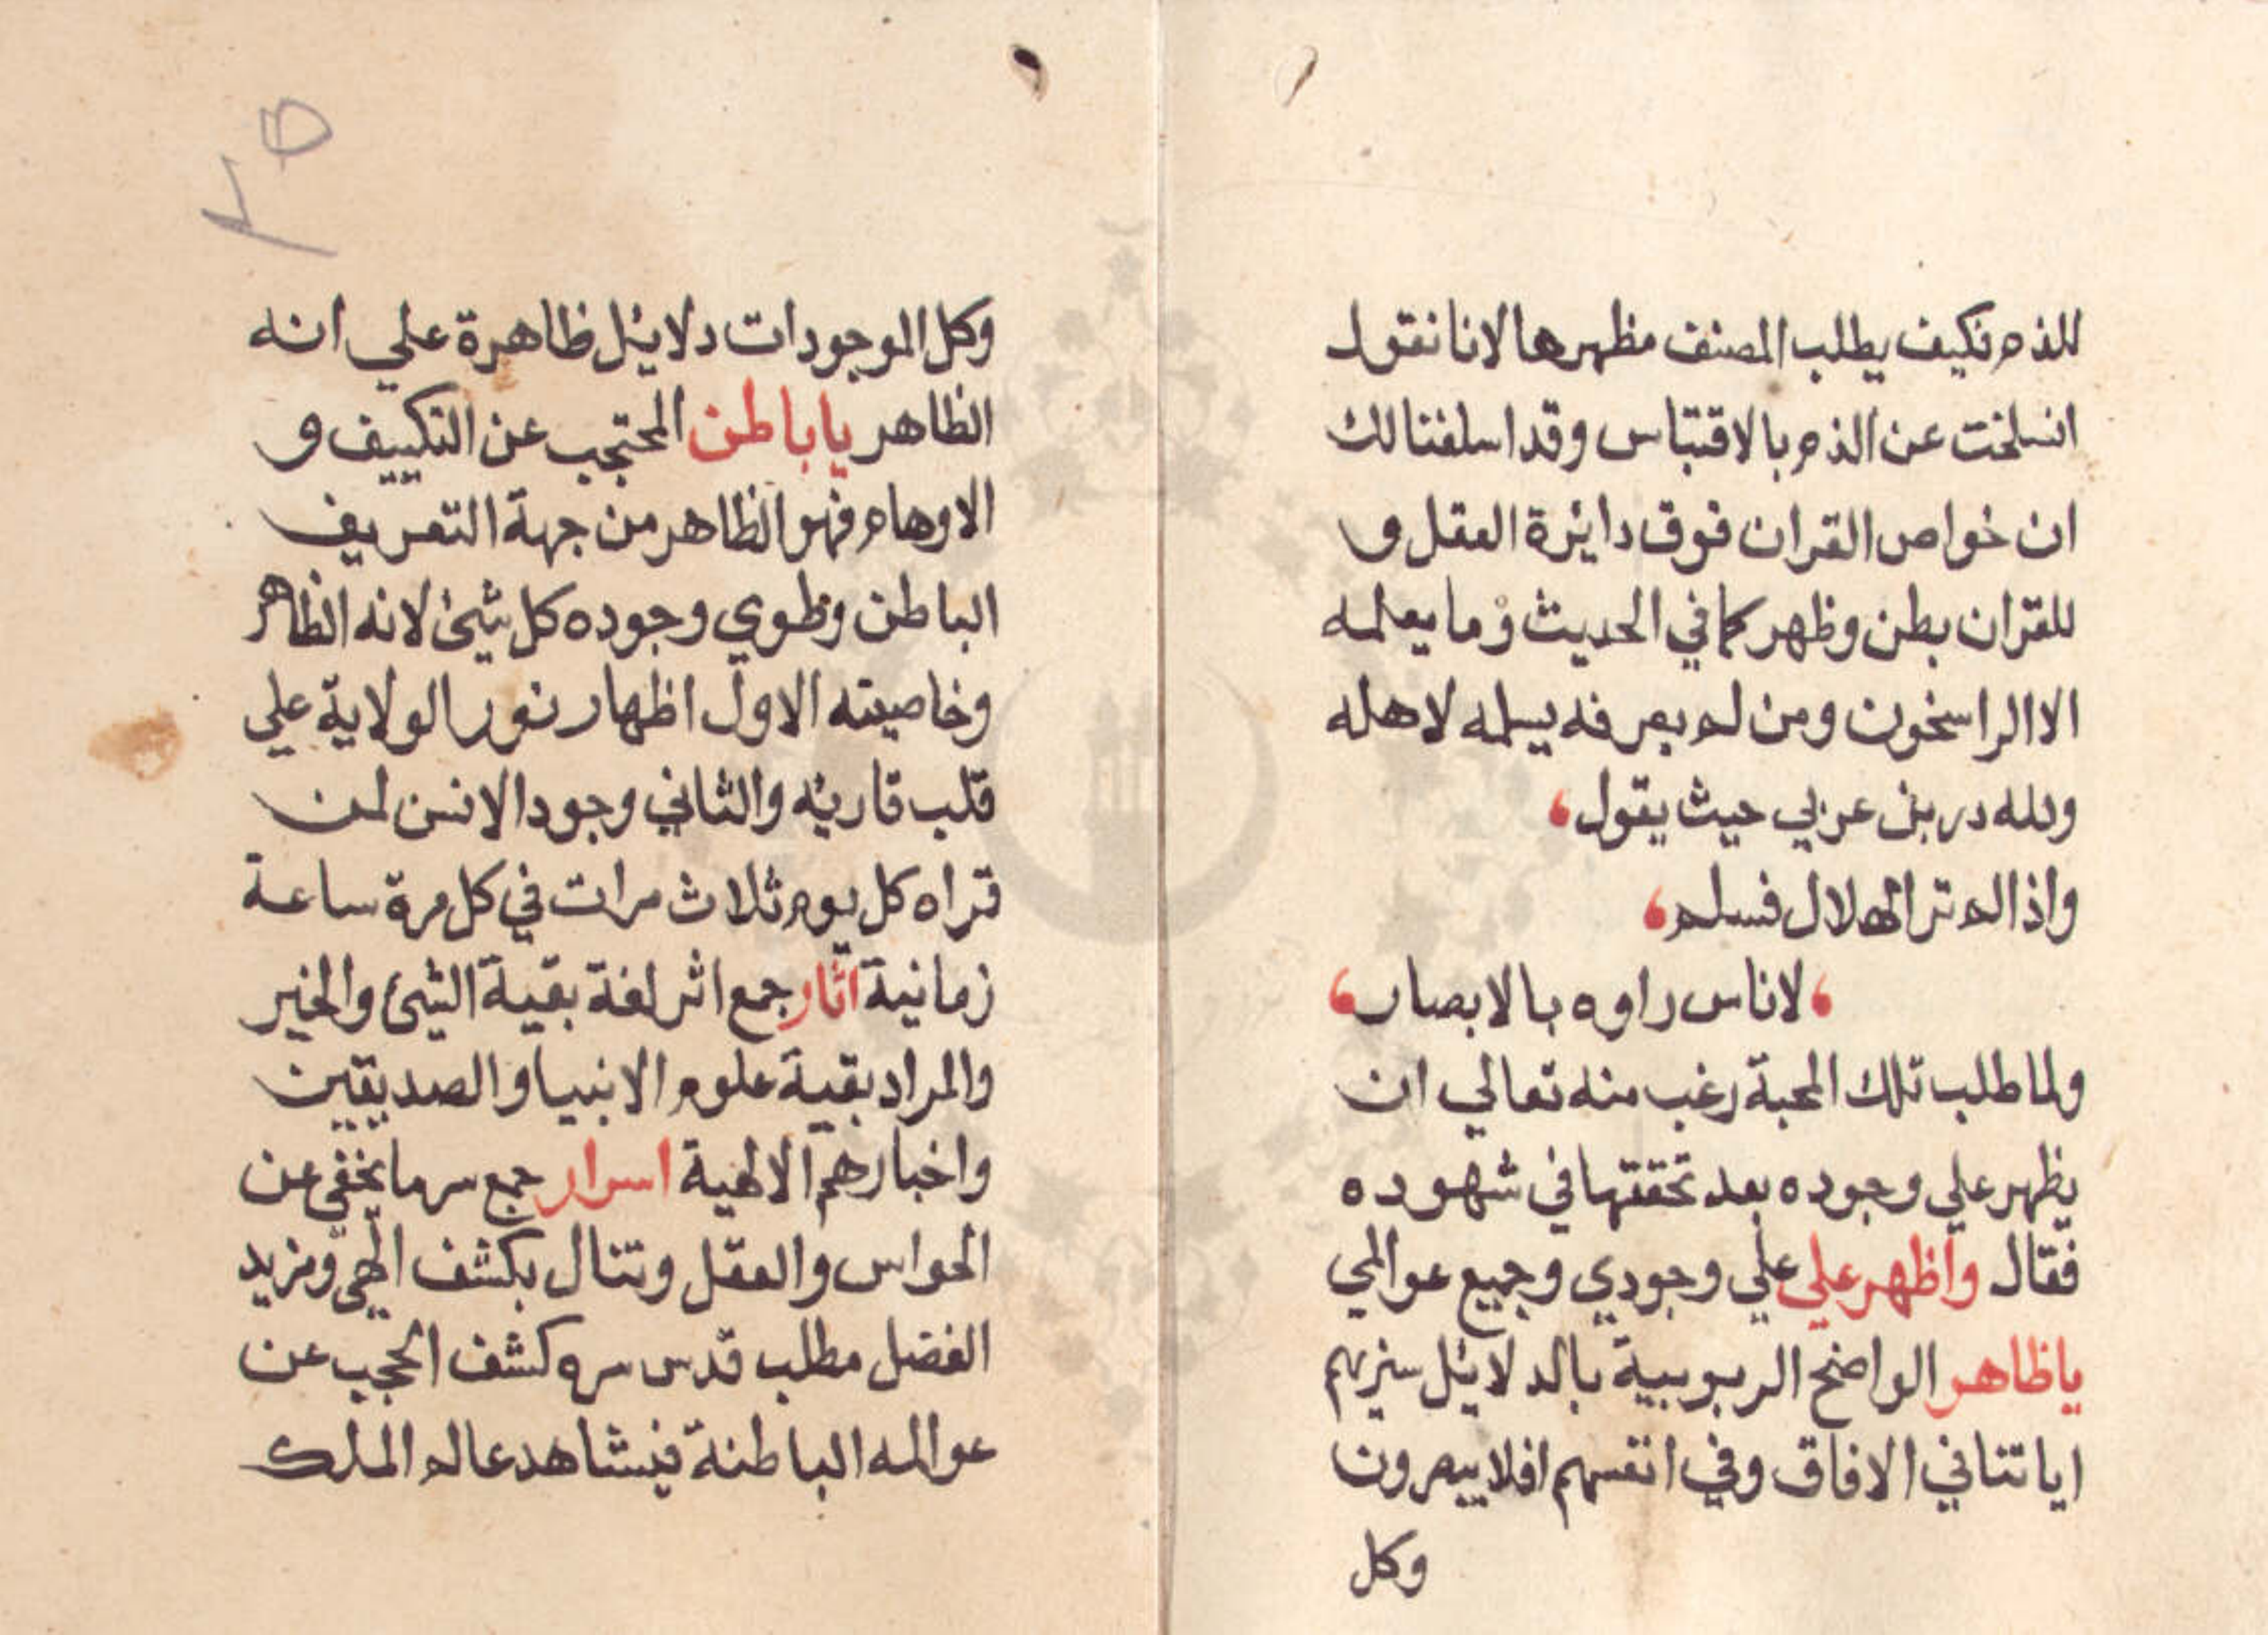 للذم فكيف يطلب المصنف مظهرها لانا نقول
انسلخت عن الذم بالاقتباس وقد اسلفنا لك
ان خواص القران فوق دايرة العقل و
للقران بطن وظهر كما في الحديث وما يعلمه
الا الراسخون ومن لم يعرفه يسلمه لاهله
ولله در بن عربي حيث يقول
واذا لم تر الهلال فسلم
لاناس راوه بالابصار
ولما طلب تلك المحبة رغب منه تعالي ان
يظهر علي وجوده بعد تحققها في شهوده
فقال واظهر علي علي وجودي وجميع عوالمي
ياظاهر الواضح الربوبية بالدلايل سنريهم
اياتنا في الافاق وفي انفسهم افلا يبصرون
وكل
٢٥
وكل الموجودات دلايل ظاهرة علي انه
الظاهر ياباطن المحتجب عن التكييف و
الاوهام فهو الظاهر من جهة التعريف
الباطن وطوي وجوده كل شئ لانه الظاهر
وخاصيته الاول اظهار نور الولاية علي
قلب قاريه والثاني وجود الانس لمن
قراه كل يوم ثلاث مرات في كل مرة ساعة
زمانية اثار جمع اثر لغة بقية الشئ والخبر
والمراد بقية علوم الانبيا والصديقين
واخبارهم الالهية اسرار جمع سر ما يخفي عن
الحواس والعقل وتنال بكشف الهي ومزيد
الفضل مطلب قدس سره كشف الحجب عن
عوالمه الباطنة فيشاهد عالم الملك